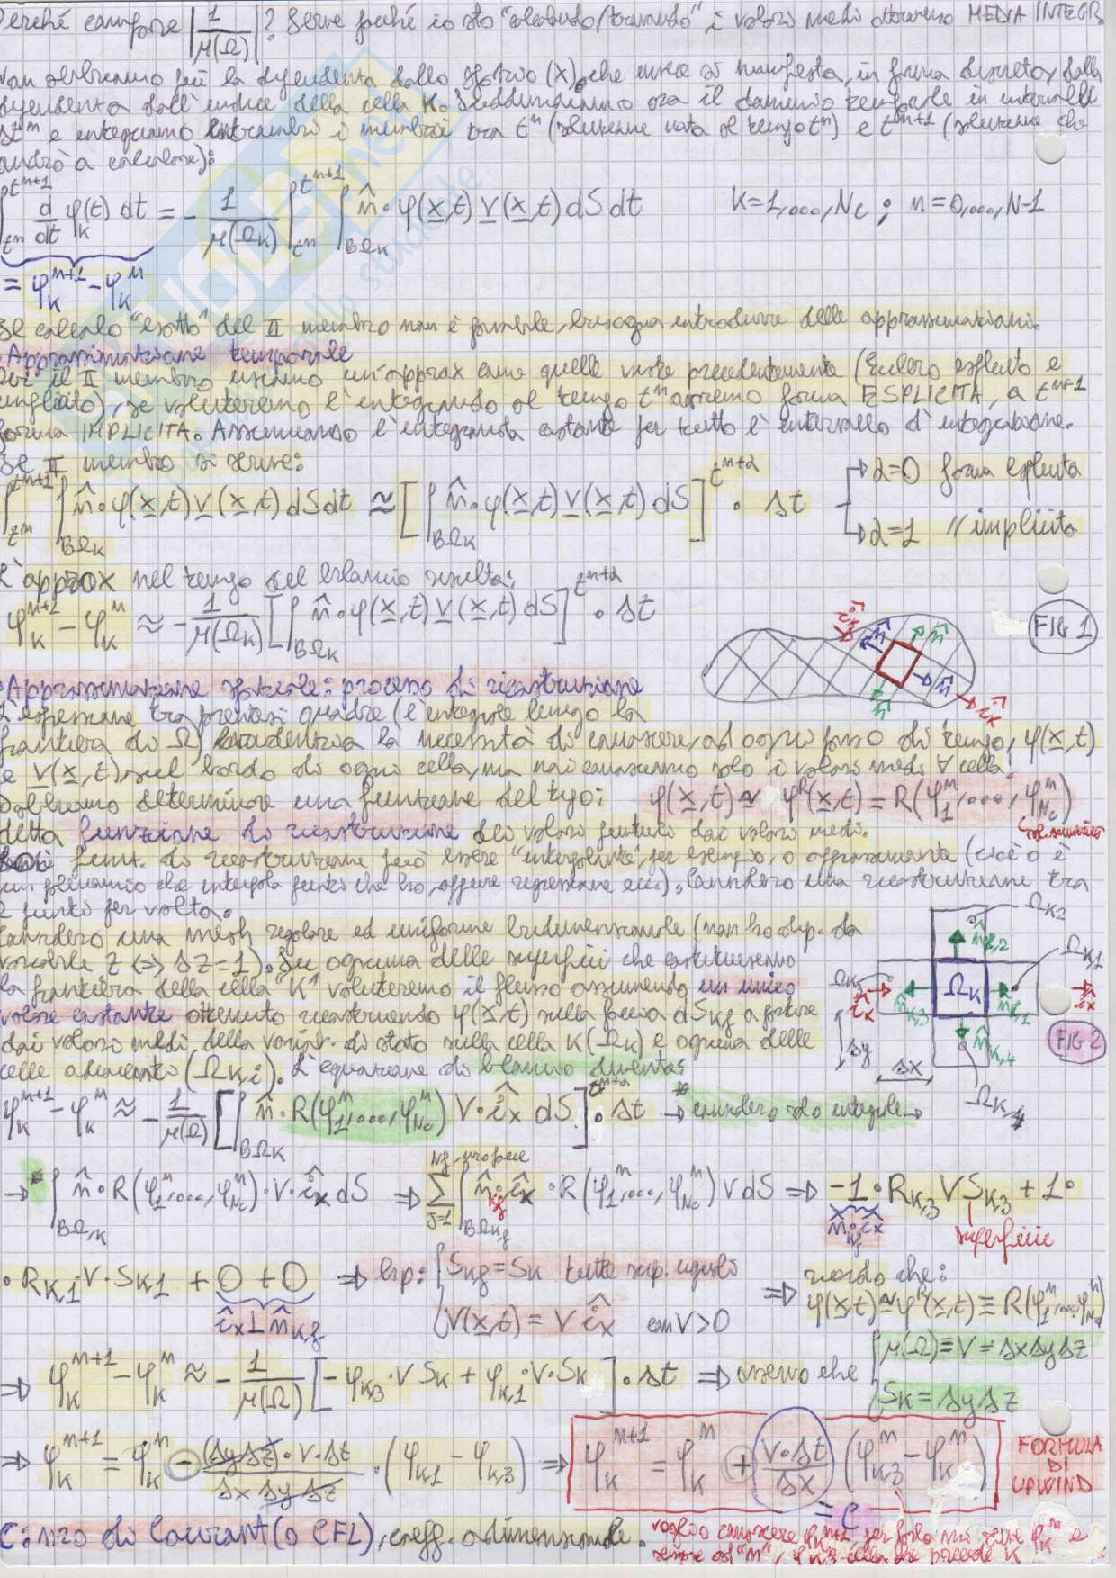 Perché compare |1/μ(Ω)|? Serve perché io sto "calcolando/trovando" i valori medi attraverso MEDIA INTEGR
Non abbiamo più la dipendenza dallo spazio (x) che invece si manifesta, in forma discreta, dalla
dipendenza dall'indice della cella K. Suddividiamo ora il dominio temporale in intervalli
Δtⁿ e integriamo entrambi i membri tra tⁿ (soluzione nota al tempo tⁿ) e tⁿ⁺¹ (soluzione che
andrò a calcolare):
∫_{tⁿ}^{tⁿ⁺¹} d/dt φ_K(t) dt = - 1/μ(Ω_K) ∫_{tⁿ}^{tⁿ⁺¹} ∫_{BΩ_K} n̂·φ(x,t) v(x,t) dS dt K=1,...,N_c ; n=0,...,N-1
= φ_Kⁿ⁺¹ - φ_Kⁿ
Il calcolo "esatto" del II membro non è possibile, bisogna introdurre delle approssimazioni.
·Approssimazione temporale
Per il II membro usiamo un'approx come quelle viste precedentemente (Eulero esplicito e
implicito), se valuteremo l'integrando al tempo tⁿ avremo forma ESPLICITA, a tⁿ⁺¹
forma IMPLICITA. Assumiamo l'integranda costante per tutto l'intervallo d'integrazione.
Il II membro si scrive:
∫_{tⁿ}^{tⁿ⁺¹} ∫_{BΩ_K} n̂·φ(x,t) v(x,t) dS dt ≈ [∫_{BΩ_K} n̂·φ(x,t) v(x,t) dS]^{tⁿ⁺α} · Δt → α=0 forma esplicita
→ α=1 // implicita
L'approx nel tempo del bilancio risulta:
φ_Kⁿ⁺¹ - φ_Kⁿ ≈ - 1/μ(Ω_K) [∫_{BΩ_K} n̂·φ(x,t) v(x,t) dS]^{tⁿ⁺α} · Δt
FIG 1
n̂ n̂ n̂ n̂ îx
·Approssimazione spaziale: processo di ricostruzione
L'espressione tra parentesi quadre (l'integrale lungo la
frontiera di Ω) evidenzia la necessità di conoscere, ad ogni passo di tempo, φ(x,t)
e v(x,t) sul bordo di ogni cella, ma noi conosciamo solo i valori medi ∀ cella
Dobbiamo determinare una funzione del tipo: φ(x,t) ≈ φᴿ(x,t) = R(φ₁ⁿ,...,φ_{Nc}ⁿ)
detta funzione di ricostruzione dei valori puntuali dai valori medi.
funz. di ricostruzione può essere "interpolante", per esempio, o approssimante (cioè o è
un polinomio che interpola punti che ho, oppure regressione ecc.), considero una ricostruzione tra
2 punti per volta.
Considero una mesh regolare ed uniforme bidimensionale (non ho dip. da
variabile z ⟺ Δz=1). Su ognuna delle superfici che costituiscono
la frontiera della cella "K" valuteremo il flusso assumendo un unico
valore costante ottenuto ricostruendo φ(x,t) sulla faccia dS_{Kf} a partire
dai valori medi della variab. di stato sulla cella K (Ω_K) e ognuna delle
celle adiacenti (Ω_{K,i}). L'equazione di bilancio diventa:
Ω_{K,2}
Ω_{K,1}
Ω_{K,3}
Ω_K
n̂_{K,2}
n̂_{K,3}
n̂_{K,1}
n̂_{K,4}
îx
îx
Δy
Δx
Ω_{K,4}
FIG 2
φ_Kⁿ⁺¹ - φ_Kⁿ ≈ - 1/μ(Ω) [∫_{BΩ_K} n̂·R(φ₁ⁿ,...,φ_{Nc}ⁿ) V·îx dS]^{tⁿ⁺α} · Δt → considero solo integrale →
→ * ∫_{BΩ,K} n̂·R(φ₁ⁿ,...,φ_{Nc}ⁿ)·V·îx dS ⇒ Σ_{J=1}^{Nf} ∫_{BΩ_{Kf}} n̂_{Kf}·îx·R(φ₁ⁿ,...,φ_{Nc}ⁿ) V dS ⇒ -1·R_{K,3} V S_{K,3} + 1·
n̂_{Kf}·îx superficie
·R_{K,1} V·S_{K,1} + 0 + 0 ⇒ hp: { S_{Kf} = S_K tutte sup. uguali
îx ⊥ n̂_{K,f}
V(x,t) = V îx con V>0
⇒ ricordo che:
φ(x,t) ≈ φᴿ(x,t) ≡ R(φ₁ⁿ...φ_{Nc}ⁿ)
⇒ φ_Kⁿ⁺¹ - φ_Kⁿ ≈ - 1/μ(Ω) [-φ_{K,3}·V S_K + φ_{K,1}·V·S_K]·Δt ⇒ osservo che { μ(Ω) ≡ V = ΔxΔyΔz
S_K = ΔyΔz
⇒ φ_Kⁿ⁺¹ = φ_Kⁿ - (ΔyΔz)·V·Δt / ΔxΔyΔz · (φ_{K,1} - φ_{K,3}) ⇒ φ_Kⁿ⁺¹ = φ_Kⁿ + V·Δt/Δx (φ_{K,3}ⁿ - φ_Kⁿ)
= C
FORMULA
DI
UPWIND
C: n.ro di Courant (o CFL), coeff. adimensionale.
voglio conoscere φ_Kⁿ⁺¹, per farlo mi serve φ_Kⁿ e
sempre ad "n", φ_{K,3} della che precede K